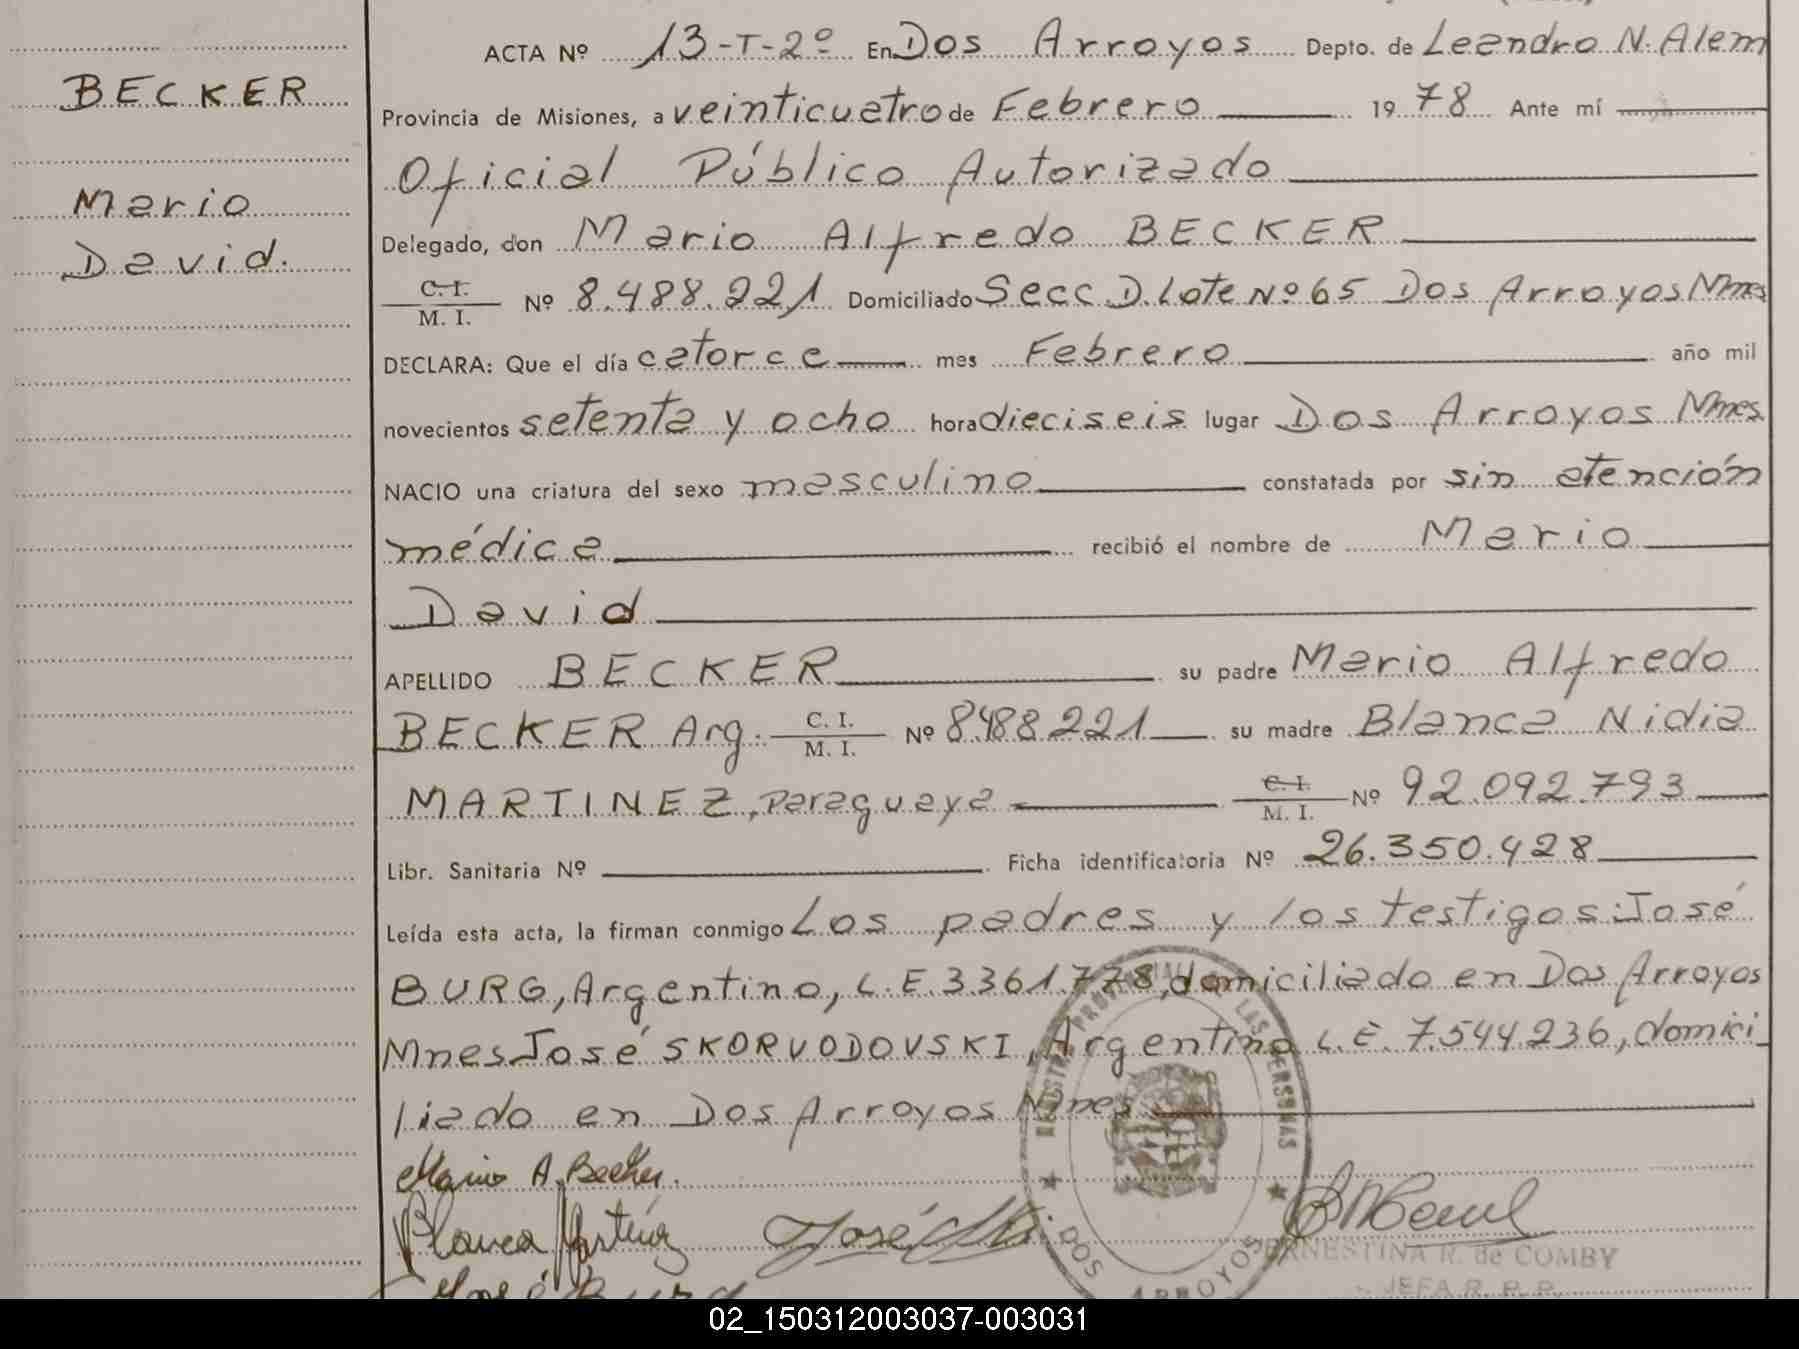 BECKER
Mario
David.
ACTA Nº 13-T-2º En Dos Arroyos Depto. de Leandro N. Alem
Provincia de Misiones, a veinticuatro de Febrero 1978 Ante mí
Oficial Público Autorizado
Delegado, don Mario Alfredo BECKER
C. I. M. I. Nº 8.488.221 Domiciliado Secc D. Lote Nº 65 Dos Arroyos Mnes
DECLARA: Que el día catorce mes Febrero año mil
novecientos setenta y ocho hora dieciseis lugar Dos Arroyos Mnes.
NACIO una criatura del sexo masculino constatada por sin atención
médica recibió el nombre de Mario
David
APELLIDO BECKER su padre Mario Alfredo
BECKER Arg. C. I. M. I. Nº 8488221 su madre Blanca Nidia
MARTINEZ, Paraguaya C. I. M. I. Nº 92.092.793
Libr. Sanitaria Nº Ficha identificatoria Nº 26.350.428
Leída esta acta, la firman conmigo Los padres y los testigos: José
BURG, Argentino, L.E. 3361.778, domiciliado en Dos Arroyos
Mnes José SKORVODOVSKI, Argentino L.E. 7.544.236, domici
liado en Dos Arroyos Mnes
Mario A. Becker.
Blanca Martínez José
José Burg
DOS ARROYOS
ERNESTINA R. de COMBY
JEFA R. P. P.
02_150312003037-003031